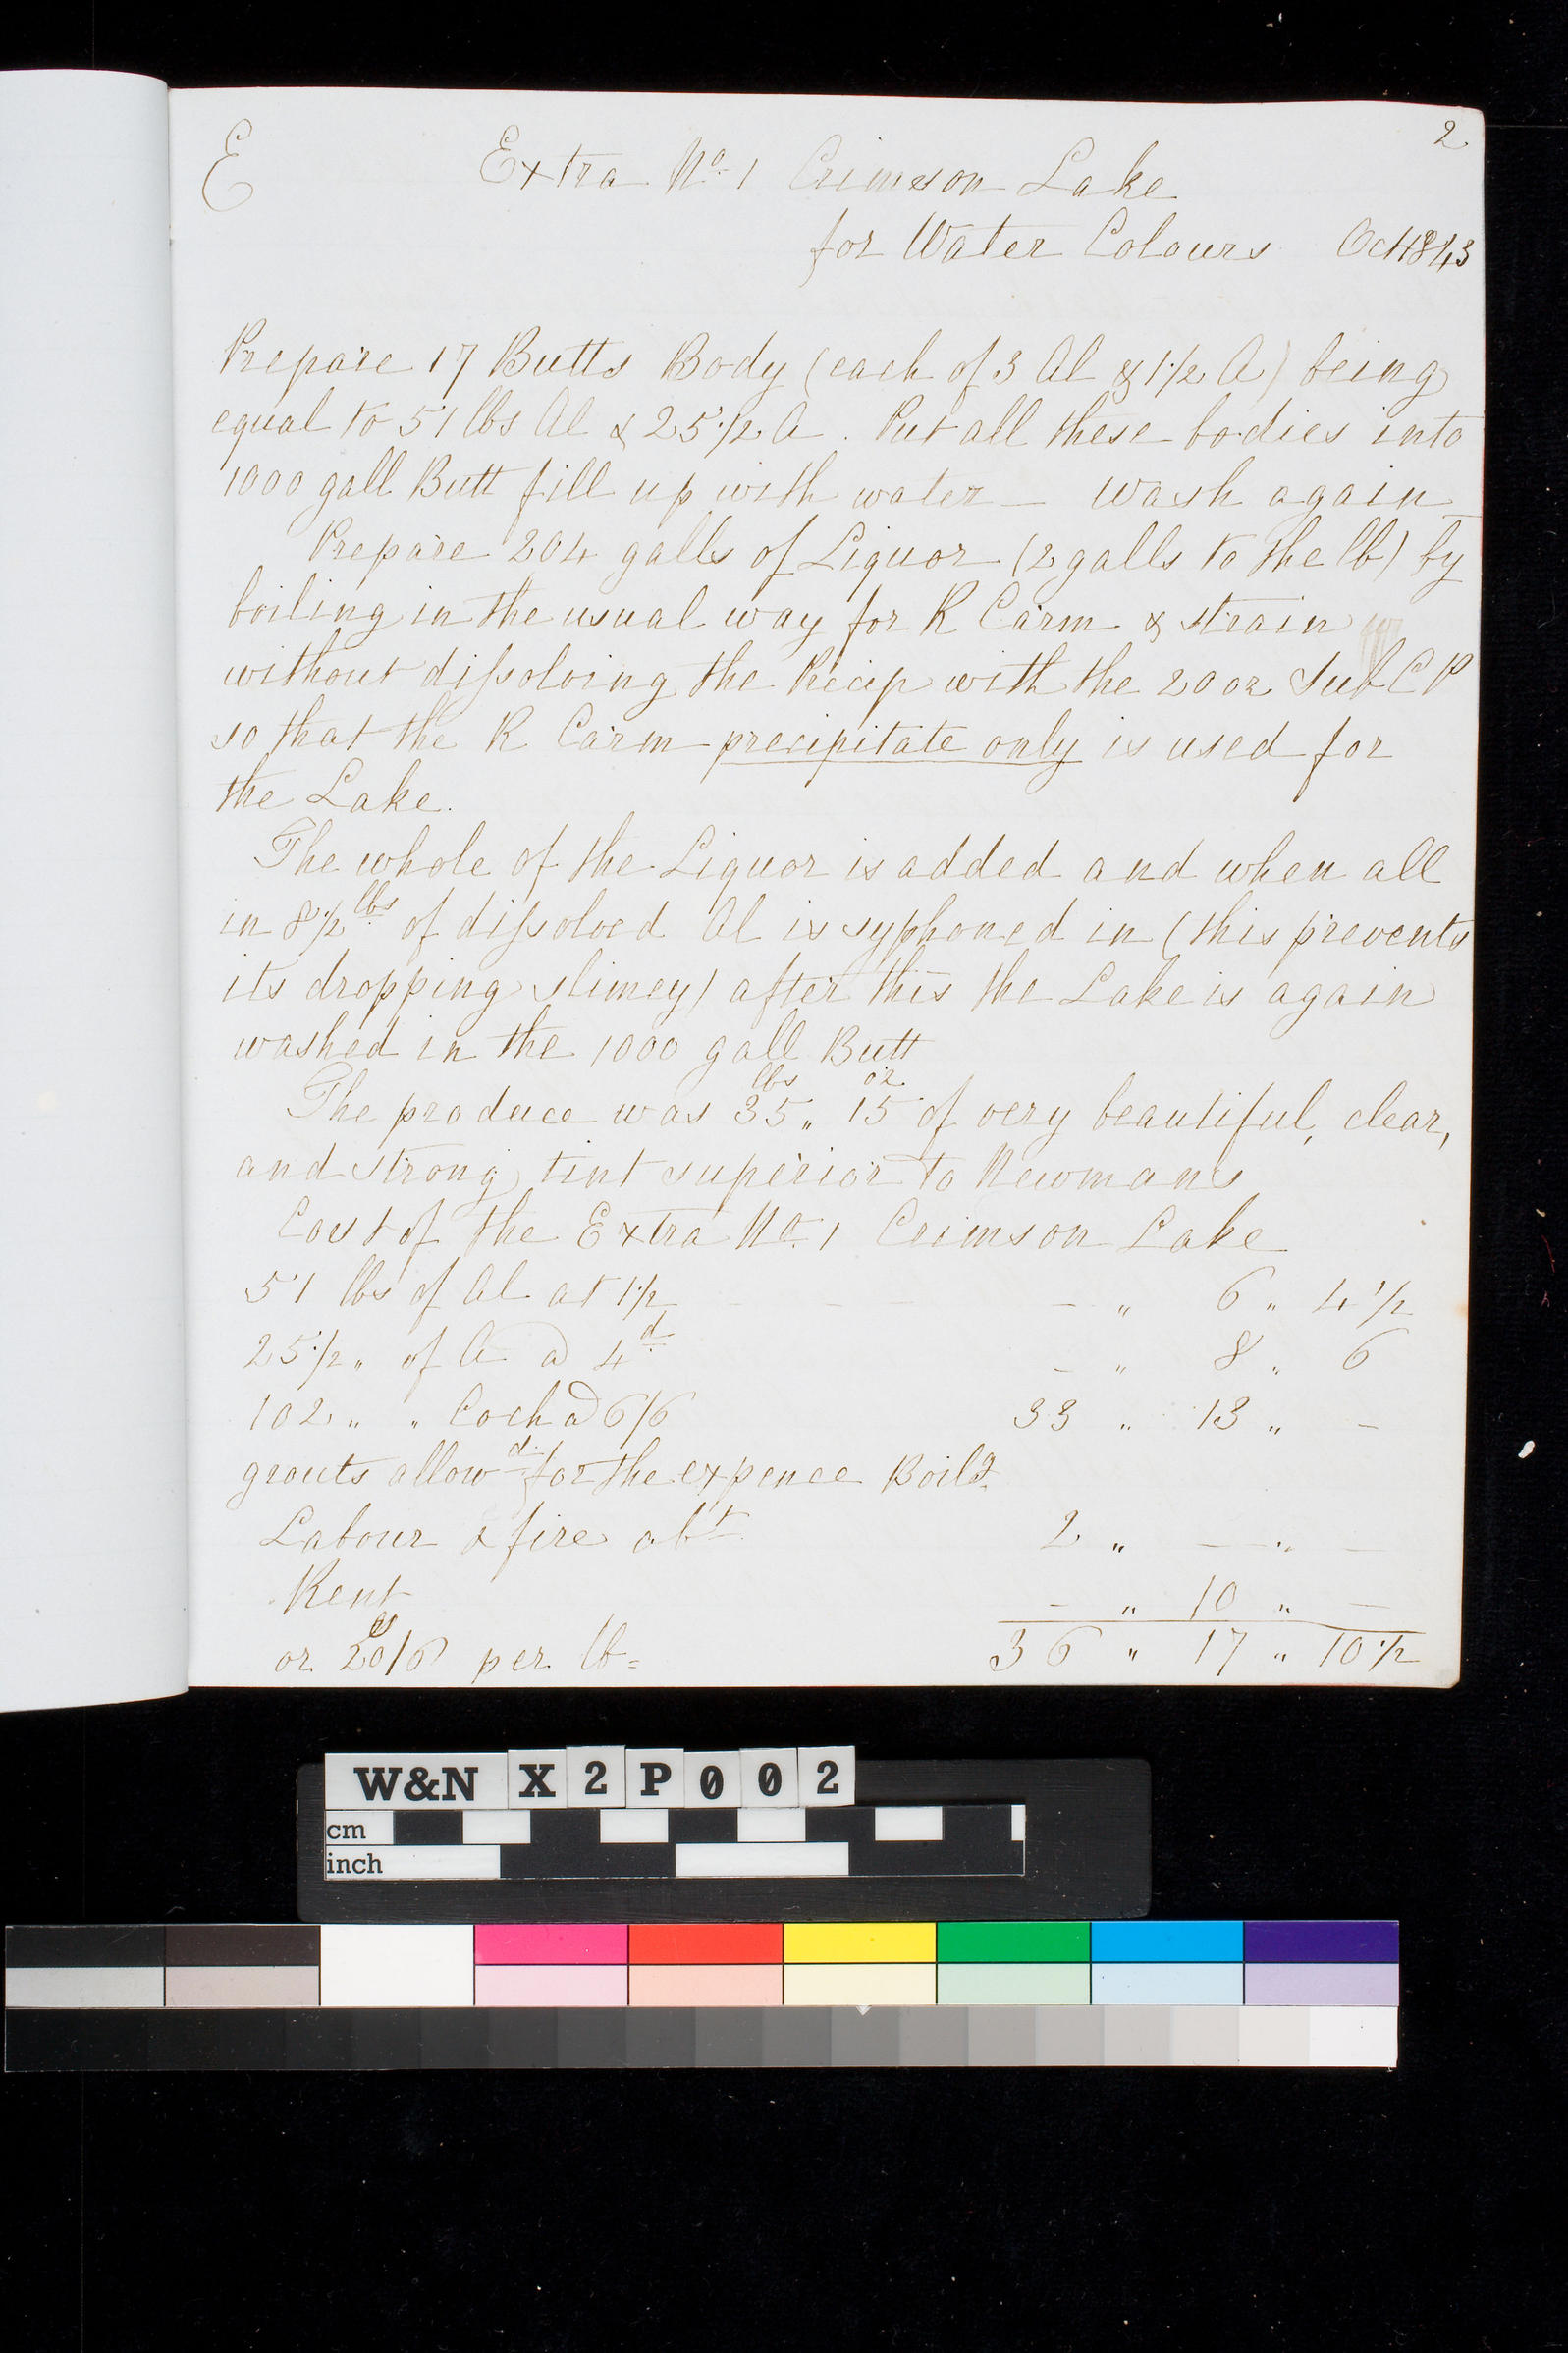 2
E Extra No. 1 Crimson Lake
for Water Colours Oct 1843
Prepare 17 Butts Body (each of 3 Al & 1 1/2 A) being
equal to 51 lbs Al & 25 1/2 A. Put all these bodies into
1000 gall Butt fill up with water — wash again
Prepare 204 galls of Liquor (2 galls to the lb) by
boiling in the usual way for R Carm & strain
without dissolving the Precip with the 20 oz Sub C P
so that the R Carm precipitate only is used for
the Lake.
The whole of the Liquor is added and when all
in 8 1/2 lbs of dissolved Al is syphoned in (this prevents
its dropping slimey) after this the Lake is again
washed in the 1000 gall Butt
The produce was 35 lbs „ 15 oz of very beautiful, clear,
and strong tint superior to Newmans
Cost of the Extra No. 1 Crimson Lake
51 lbs of Al at 1 1/2 — „ 6 „ 4 1/2
25 1/2 „ of A @ 4d — „ 8 „ 6
102 „ „ Coch @ 6/6 33 „ 13 „ —
grouts allowd for the expence Boilg.
Labour & fire abt 2 „ — „ —
Rent — „ 10 „ —
or 20/6 per lb = 36 „ 17 „ 10 1/2
W&N X 2 P 0 0 2
cm
inch